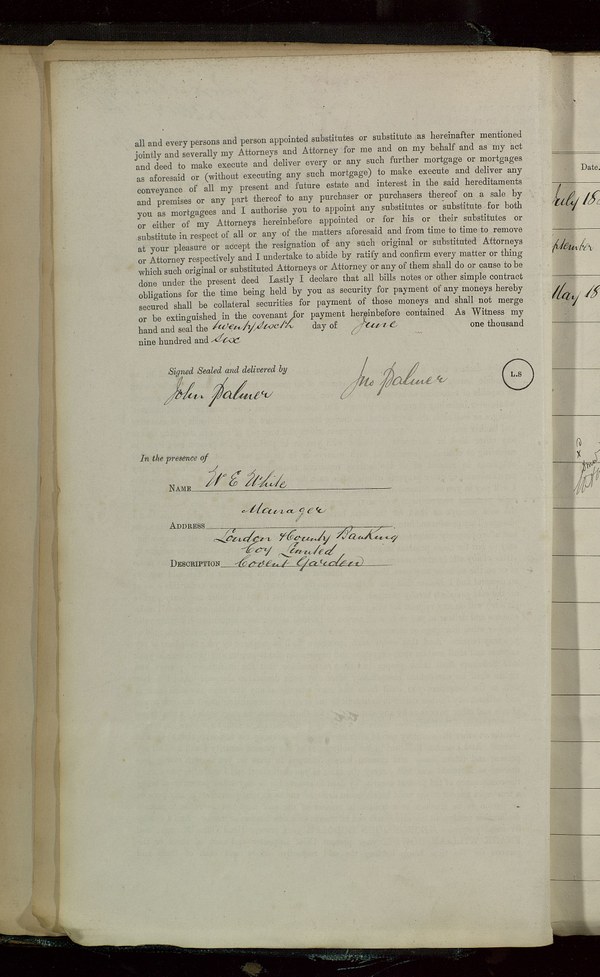 all and every persons and person appointed substitutes or substitute as hereinafter mentioned
jointly and severally my Attorneys and Attorney for me and on my behalf and as my act
and deed to make execute and deliver every or any such further mortgage or mortgages
as aforesaid or (without executing any such mortgage) to make execute and deliver any
conveyance of all my present and future estate and interest in the said hereditaments
and premises or any part thereof to any purchaser or purchasers thereof on a sale by
you as mortgagees and I authorise you to appoint any substitutes or substitute for both
or either of my Attorneys hereinbefore appointed or for his or their substitutes or
substitute in respect of all or any of the matters aforesaid and from time to time to remove
at your pleasure or accept the resignation of any such original or substituted Attorneys
or Attorney respectively and I undertake to abide by ratify and confirm every matter or thing
which such original or substituted Attorneys or Attorney or any of them shall do or cause to be
done under the present deed Lastly I declare that all bills notes or other simple contract
obligations for the time being held by you as security for payment of any moneys hereby
secured shall be collateral securities for payment of those moneys and shall not merge
or be extinguished in the covenant for payment hereinbefore contained As Witness my
hand and seal the twenty sixth day of June one thousand
nine hundred and six
Signed Sealed and delivered by
John Palmer Jno Palmer L.S
In the presence of
NAME W E White
Manager
ADDRESS
London & County Banking
Coy Limited
DESCRIPTION Covent Garden
Date.
July 18
May 18